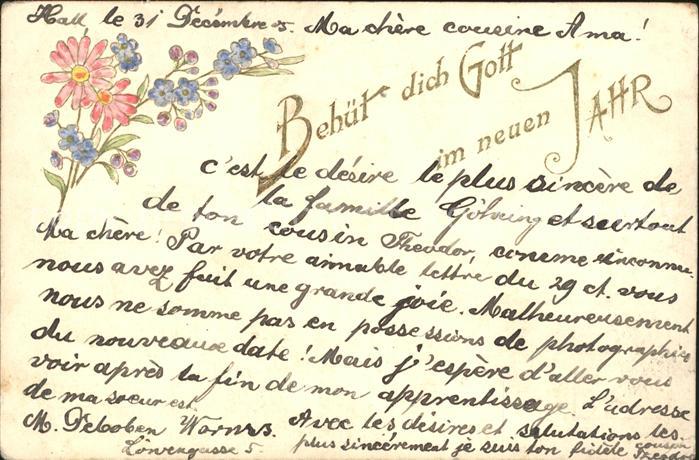 Hall le 31 Décembre 05. Ma chère cousine Ama!
Behüt dich Gott
im neuen JAHR
c'est le désire le plus sincère de
la famille Göhring et surtout
de ton cousin Theodor, comme inconnu.
Ma chère! Par votre aimable lettre du 29 ct. vous
nous avez fait une grande joie. Malheureusement
nous ne somme pas en possessions de photographie
du nouveaux date! Mais j'espère d'aller vous
voir après la fin de mon apprentissage. L'adresse
de ma soeur est
M. Worms. Avec les désires et salutations les
Löwengasse 5. plus sincèrement je suis ton fidèle cousin
Theodor